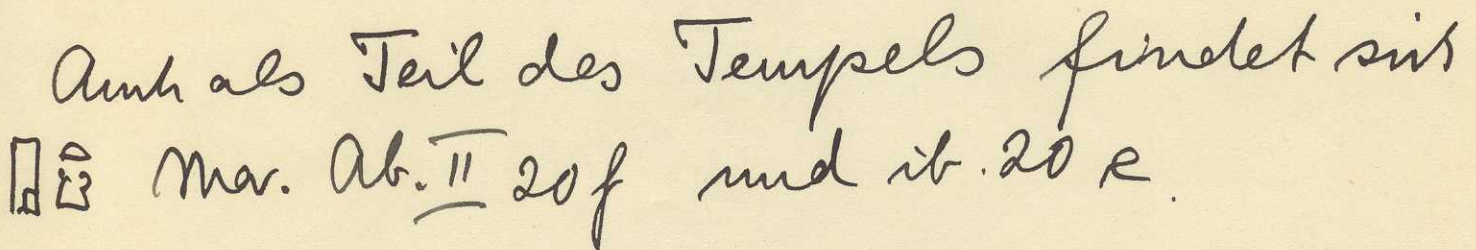 Auch als Teil des Tempels findet sich
𓉗𓏏 Mar. Ab. II 20 f und ib. 20 e.